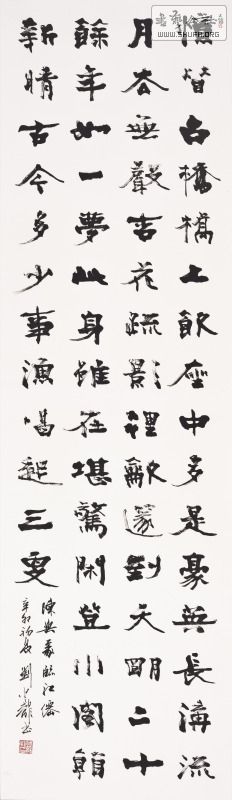 憶昔午橋橋上飲座中多是豪英長溝流
月去無聲杏花疏影裡龡篴到天明二十
餘年如一夢此身雖在堪驚閑登小閣看
新晴古今多少事漁唱起三更
陳與義臨江僊
辛卯初春劉
WWW.SHUFA.ORG